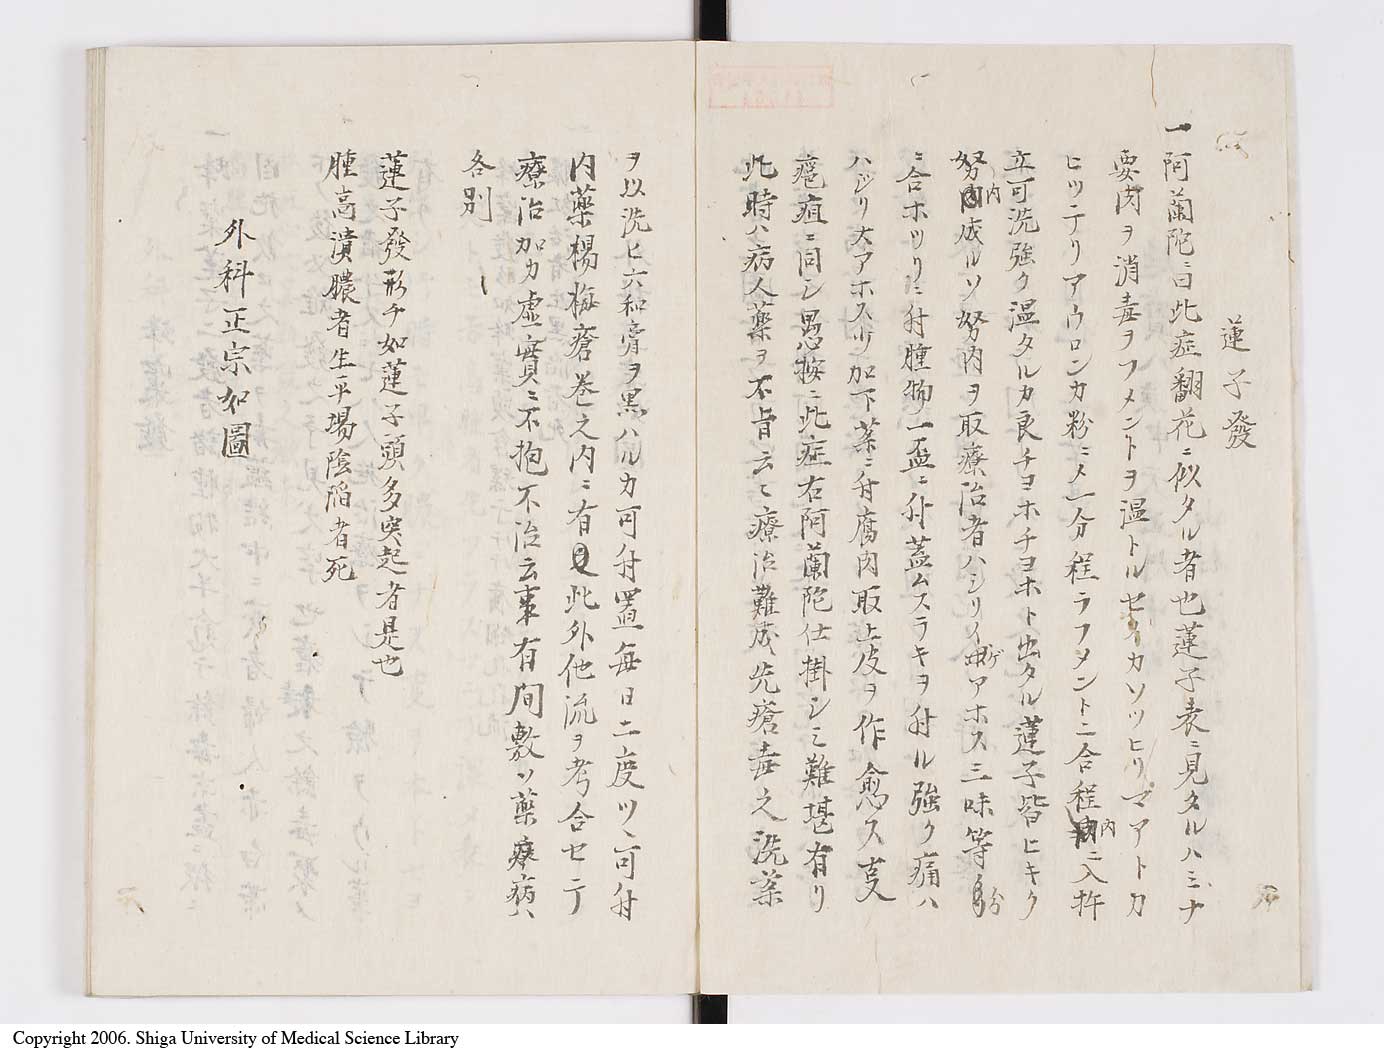 蓮子發
一阿蘭陀ニ曰此症翻花ニ似タル者也蓮子表ニ見タルハミナ
要肉ヲ消毒ヲフメントヲ温トルセイカソツヒリマアトカ
ヒツテリアウロンカ粉ニメ一分程ラフメントニ合程内ニ入杵
立可洗強ク温タルカ良チヨホチヨホト出タル蓮子皆ヒキク
努肉成ルソ努肉ヲ取療治者ハシリイケアホス三味等分
ニ合ホツリ付腫物一盃ニ付蓋ムスラキヲ付ル強ク痛ハ
ハシリ大アホスツ加下薬ニ付腐肉取上皮ヲ作愈ス
疤疽ニ同シ愚按ニ此症右阿蘭陀仕掛シミ難堪有リ
此時ハ病人薬ヲ不肯云々療治難成先瘡毒之洗薬
ヲ以洗ヒ六和膏ヲ黒ハルカ可付置毎日二度ツヽ可付
内藥楊梅瘡巻之内ニ有見此外他流ヲ考合セテ
療治加力虚實ニ不抱不治云事有間敷ソ藥療病ハ
各別
蓮子發形チ如蓮子頭多突起者是也
腫高潰膿者生平塲陰陥者死
外科正宗如圖
Copyright 2006. Shiga University of Medical Science Library